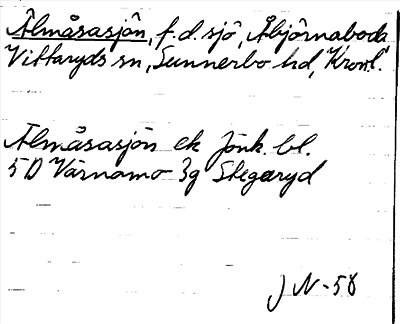 Älmåsasjön, f.d. sjö, Åbjörnaboda
Vittaryds sn, Sunnerbo hd, Kronl.
Älmåsasjön ek Jönk. bl.
5D Värnamo 3g Stegaryd
J N-58